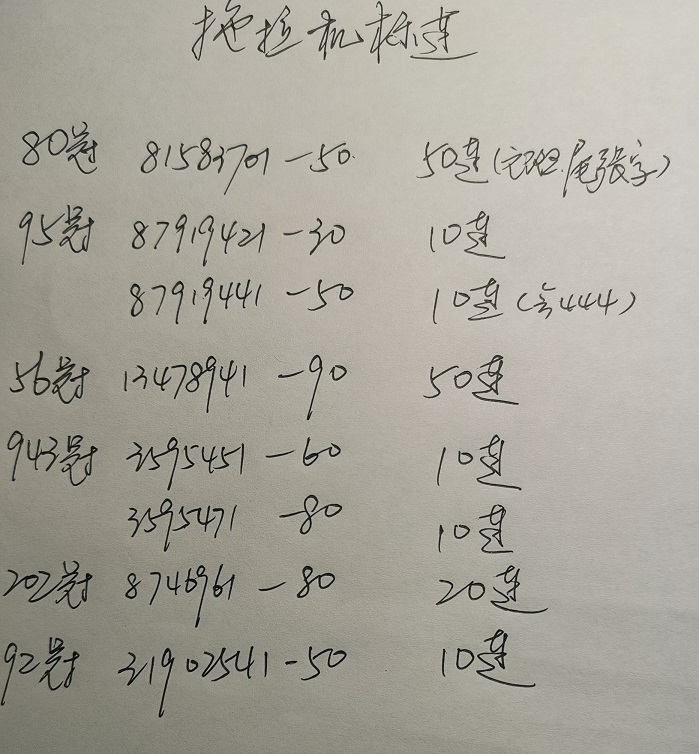 拖拉机标连
80冠 81583701-50 50连(, 尾张字)
95冠 87919421-30 10连
87919441-50 10连(含444)
56冠 13478941-90 50连
943冠 3595451-60 10连
3595471-80 10连
202冠 8746961-80 20连
92冠 31902541-50 10连